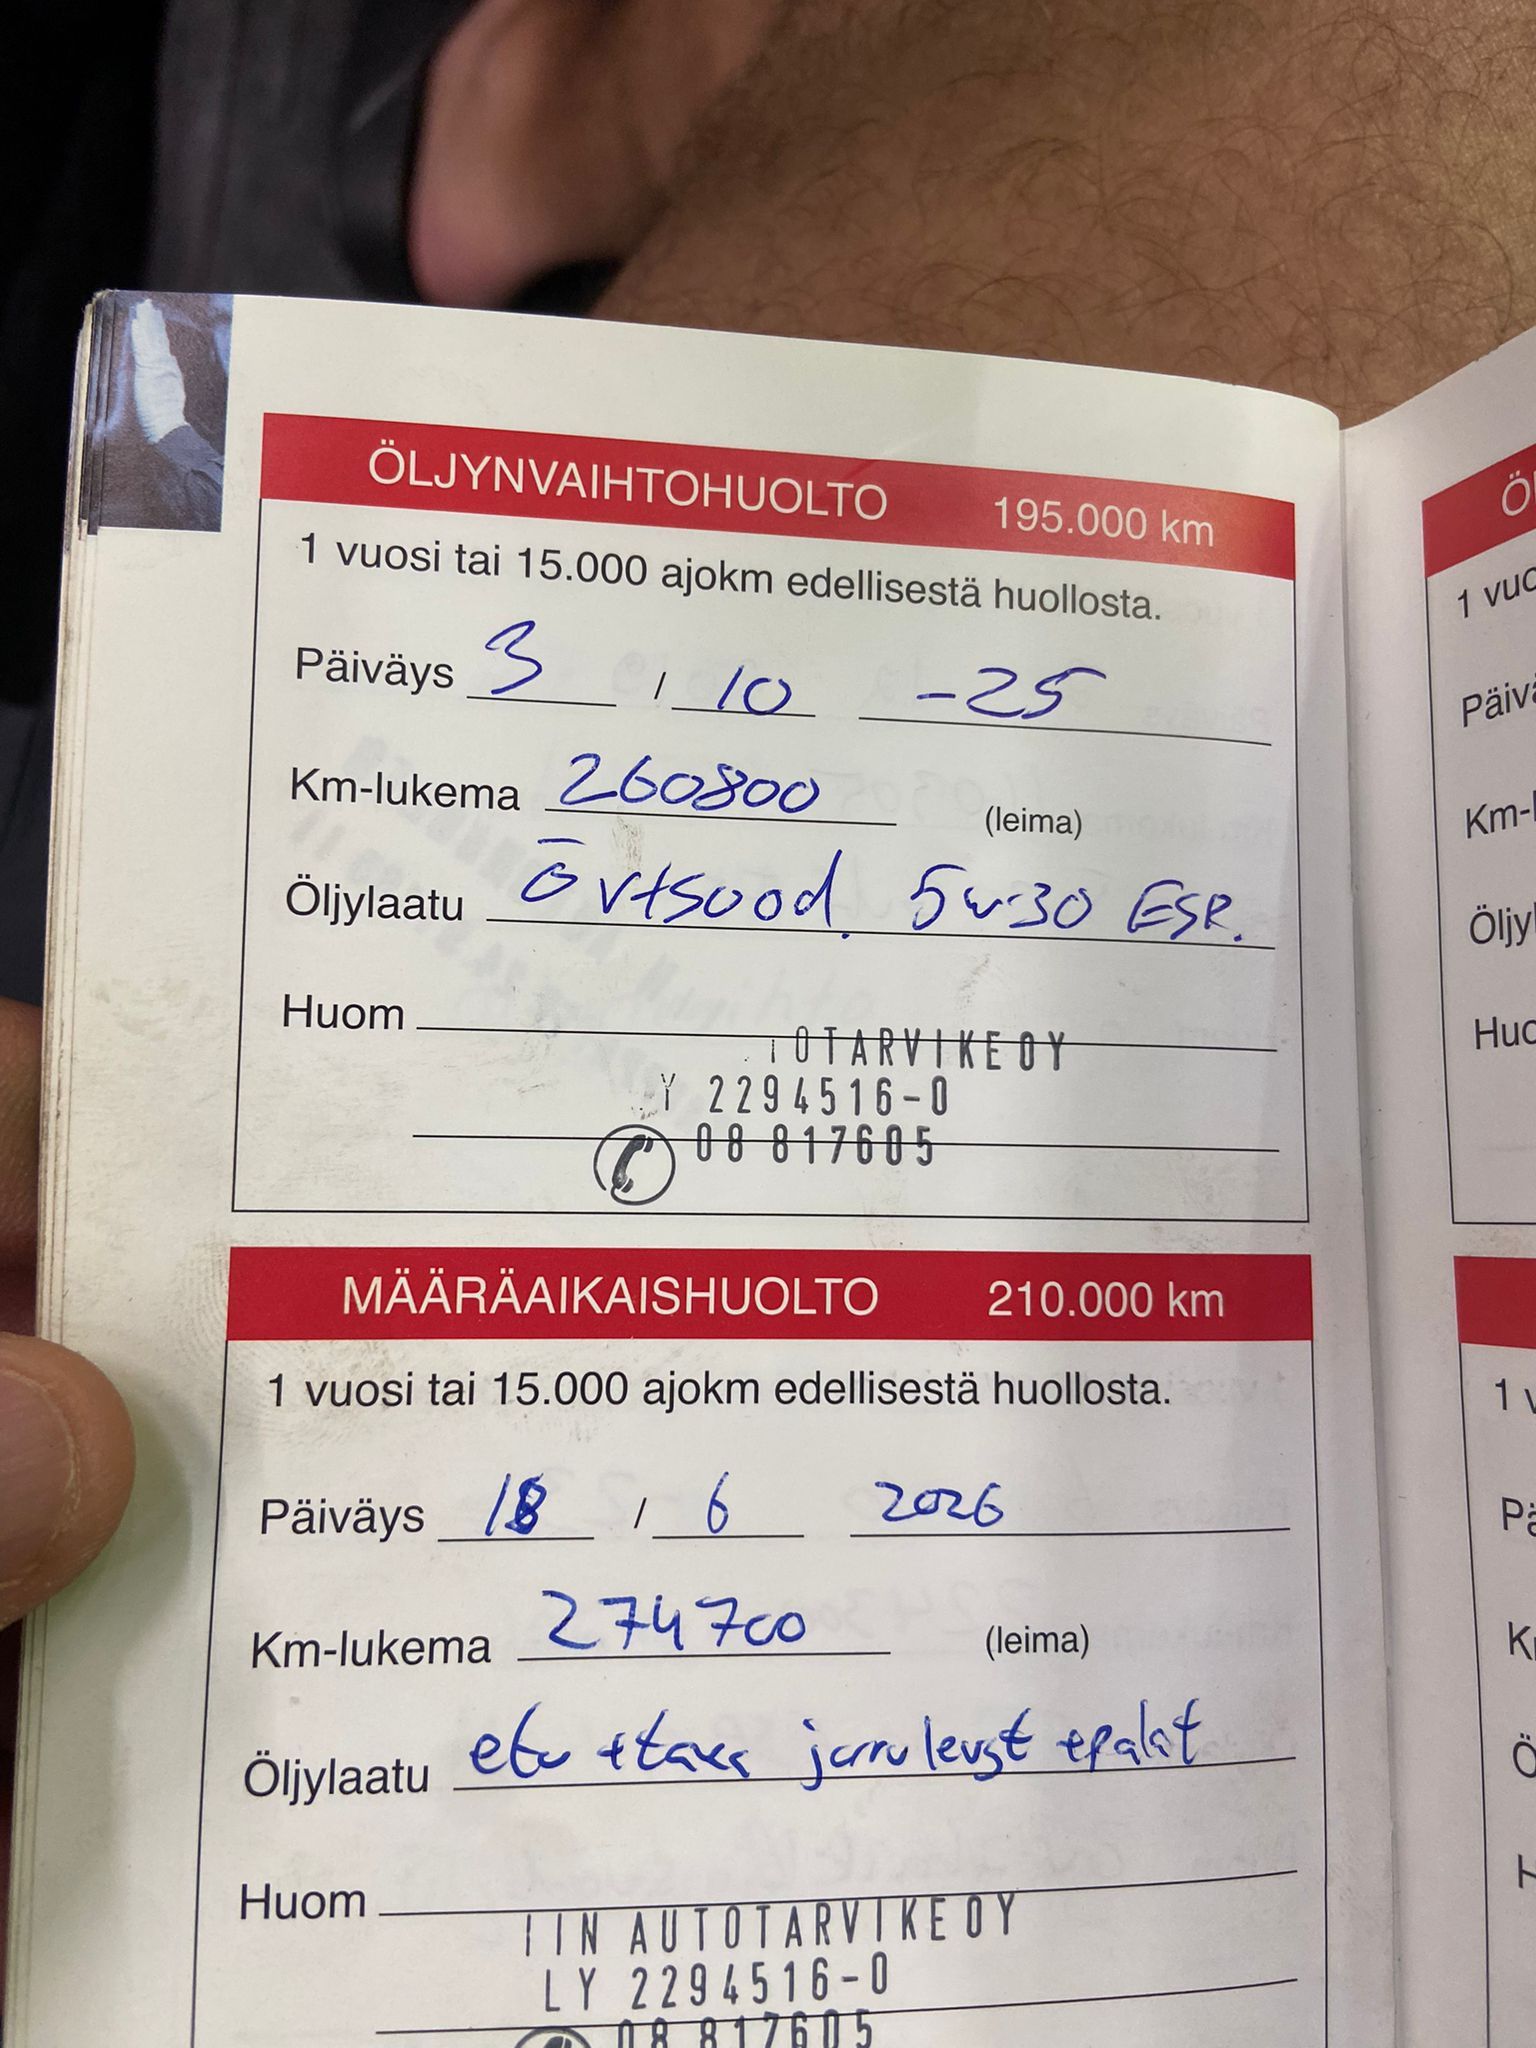 ÖLJYNVAIHTOHUOLTO 195.000 km
1 vuosi tai 15.000 ajokm edellisestä huollosta.
Päiväys 3 / 10 -25
Km-lukema 260800 (leima)
Öljylaatu 5w-30
Huom
OTARVIKE OY
Y 2294516-0
08 817605
MÄÄRÄAIKAISHUOLTO 210.000 km
1 vuosi tai 15.000 ajokm edellisestä huollosta.
Päiväys 18 / 6 2026
Km-lukema 274700 (leima)
Öljylaatu etu +taka jarrulevyt +palat
Huom
IIN AUTOTARVIKE OY
LY 2294516-0
08 817605
Ö
1 vuo
Päivä
Km-l
Öljyl
Huo
1 v
Pä
K
Ö
H